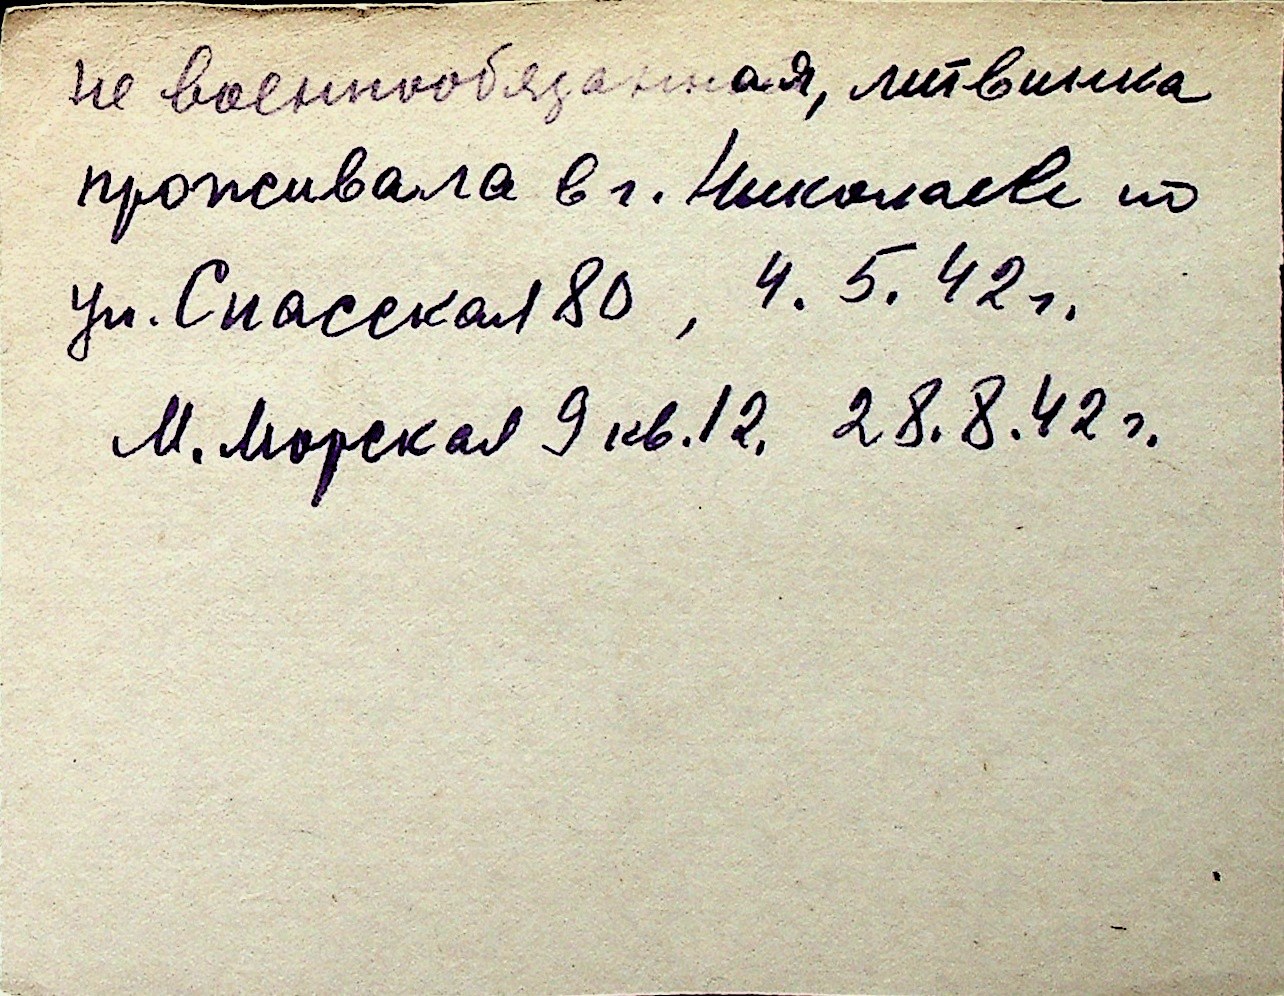 не военнообязанная, литвинка
проживала в г. Николаеве по
ул. Спасская 80, 4.5.42 г.
М. Морская 9 кв. 12. 28.8.42 г.